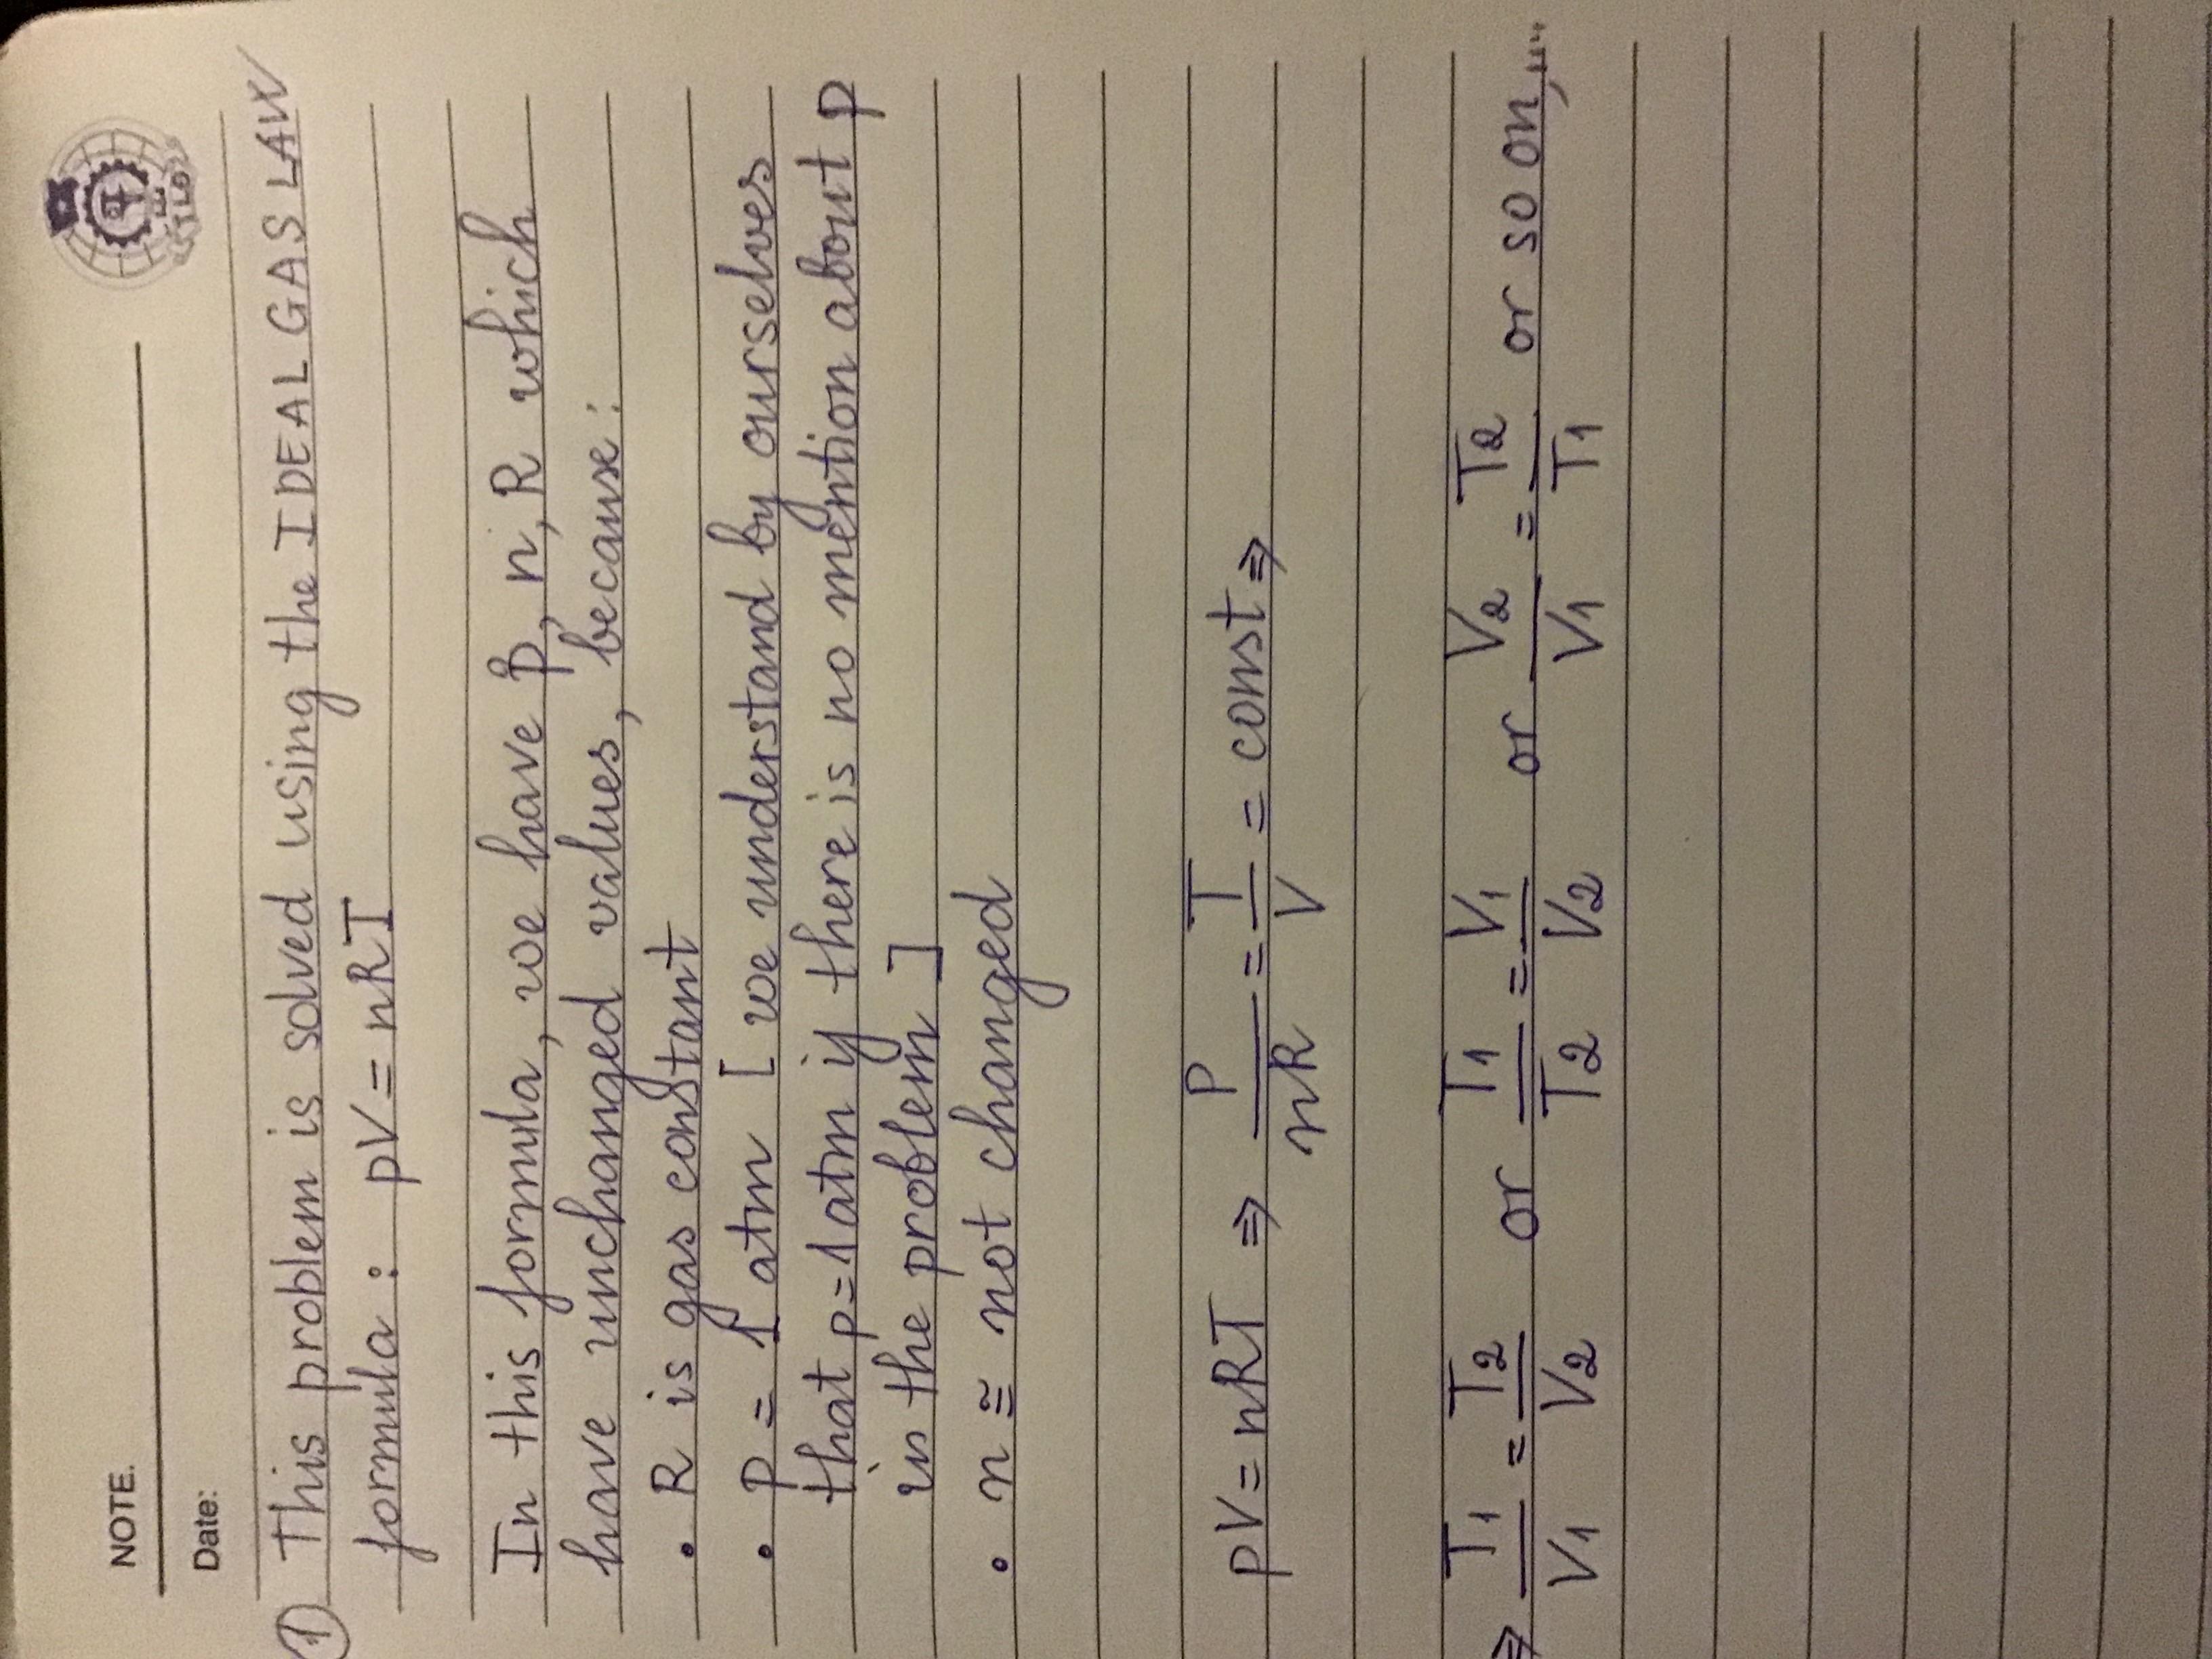 NOTE.
Date:
① This problem is solved using the IDEAL GAS LAW
formula : pV = nRT
In this formula, we have p, n, R which
have unchanged values, because :
• R is gas constant
• p = 1 atm [ we understand by ourselves
that p = 1atm if there is no mention about p
in the problem ]
• n ≅ not changed
pV = nRT ⇒ P/nR = T/V = const ⇒
⇒ T1/V1 = T2/V2 or T1/T2 = V1/V2 or V2/V1 = T2/T1 or so on,...